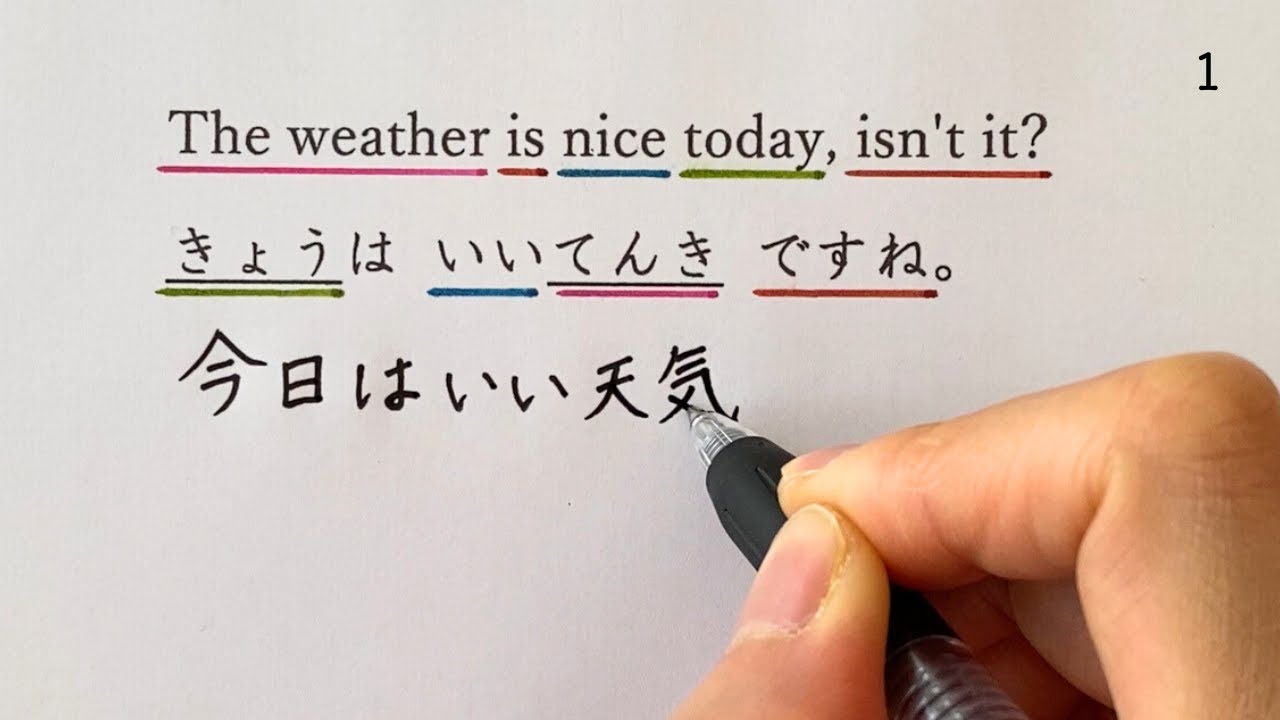 1
The weather is nice today, isn't it?
きょうは いいてんき ですね。
今日はいい天気